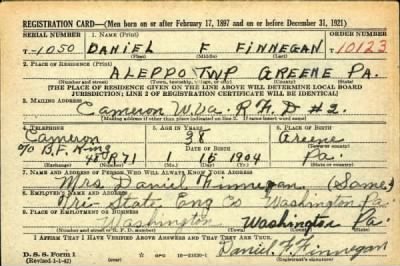 REGISTRATION CARD—(Men born on or after February 17, 1897 and on or before December 31, 1921)
SERIAL NUMBER 1. NAME (Print) ORDER NUMBER
T-1050 DANIEL F FINNEGAN 10123
(First) (Middle) (Last)
2. PLACE OF RESIDENCE (Print)
ALEPPO TWP GREENE PA.
(Number and street) (Town, township, village, or city) (County) (State)
[THE PLACE OF RESIDENCE GIVEN ON THE LINE ABOVE WILL DETERMINE LOCAL BOARD
JURISDICTION; LINE 2 OF REGISTRATION CERTIFICATE WILL BE IDENTICAL]
3. MAILING ADDRESS
Cameron W.Va. R.F.D #2.
[Mailing address if other than place indicated on line 2. If same insert word same]
4. TELEPHONE 5. AGE IN YEARS 6. PLACE OF BIRTH
Cameron 38 Greene
c/o B.F. King DATE OF BIRTH (Town or county)
48 R 71 1 15 1904 Pa.
(Exchange) (Number) (Mo.) (Day) (Yr.) (State or country)
7. NAME AND ADDRESS OF PERSON WHO WILL ALWAYS KNOW YOUR ADDRESS
Mrs Daniel Finnegan (Same)
8. EMPLOYER'S NAME AND ADDRESS
Tri-State Eng Co Washington Pa.
9. PLACE OF EMPLOYMENT OR BUSINESS
Washington Washington Pa.
(Number and street or R. F. D. number) (Town) (County) (State)
I AFFIRM THAT I HAVE VERIFIED ABOVE ANSWERS AND THAT THEY ARE TRUE.
Daniel F. Finnegan
D. S. S. Form 1
(Revised 1-1-42) (over)